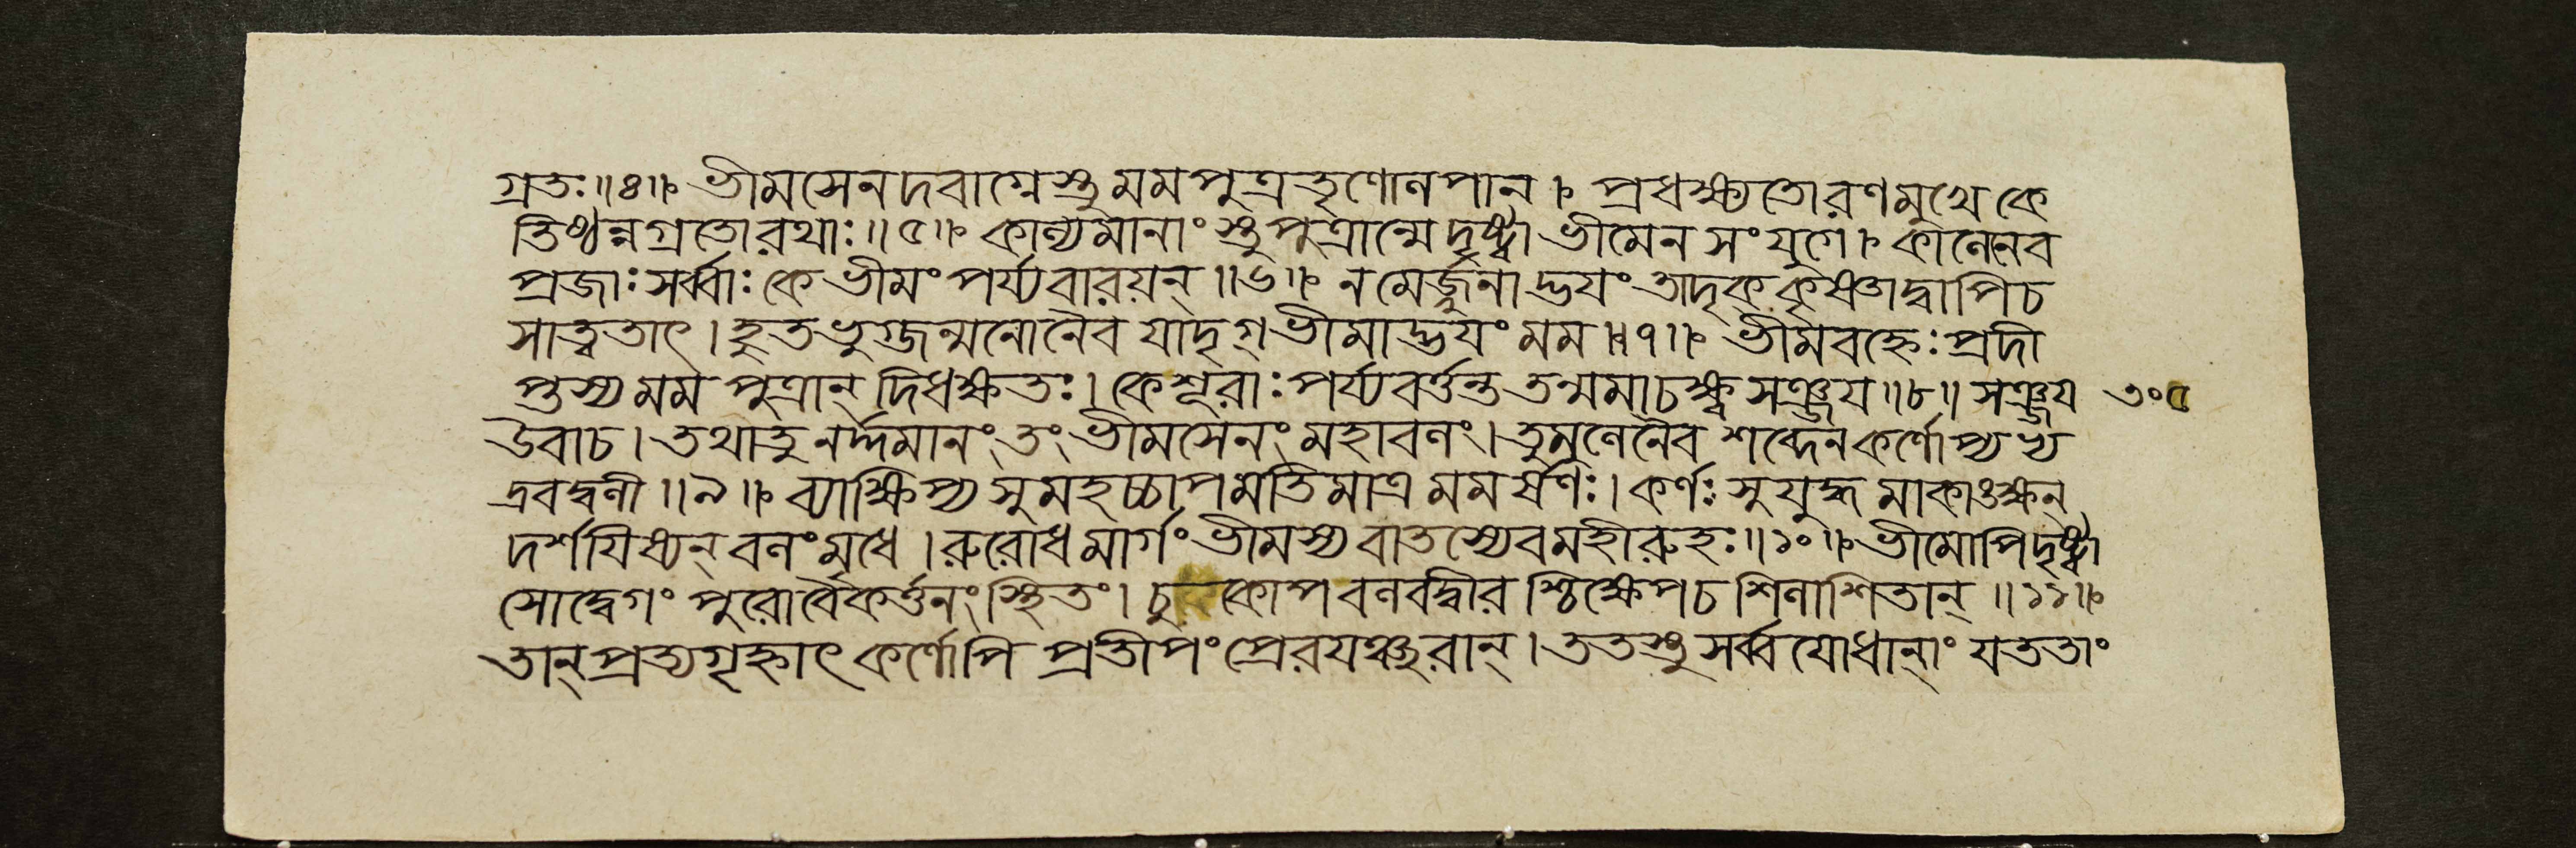 গ্রতঃ॥৪॥ ভীমসেনদবাগ্নেস্তু মমপুত্রতৃণোলপান্। প্রধক্ষ্যতোরণমুখে কে
তিষ্ঠন্নগ্রতোরথাঃ॥৫॥ কাল্যমানাংস্তু পুত্রান্মে দৃষ্ট্বা ভীমেন সংযুগে। কালেনেব
প্রজাঃ সর্ব্বাঃ কে ভীমং পর্য্যবারয়ন্॥৬॥ ন মের্জ্জুনাদ্ভয়ং তাদৃক্ কৃষ্ণাদ্বাপি চ
সাত্বতাৎ। হুতভুগ্জন্মনোনৈব যাদৃগ্ভীমাদ্ভয়ং মম॥৭॥ ভীমবহ্নেঃ প্রদী
প্তস্য মম পুত্রান্ দিধক্ষতঃ। কেশূরাঃ পর্য্যবর্ত্তন্ত তন্মমাচক্ষ্ব সঞ্জয়॥৮॥ সঞ্জয় ৩০৫
উবাচ। তথাতু নর্দ্দমানং তং ভীমসেনং মহাবলং। তুমুলেনৈব শব্দেন কর্ণোপ্যভ্য
দ্রবদ্বলী॥৯॥ ব্যাক্ষিপ্য সুমহচ্চাপমতিমাত্রমমর্ষণঃ। কর্ণঃ সুযুদ্ধমাকাঙক্ষন্
দর্শয়িষ্যন্ বলং মৃধে। রুরোধ মার্গং ভীমস্য বাতস্যেব মহীরুহঃ॥১০॥ ভীমোপি দৃষ্ট্বা
সোদ্বেগং পুরোবৈকর্ত্তনং স্থিতং। চুকোপ বলবদ্বীরশ্চিক্ষেপ চ শিলাশিতান্॥১১॥
তান্ প্রত্যগৃহ্নাৎ কর্ণোপি প্রতীপং প্রেরয়ঞ্ছরান্। ততস্তু সর্ব্বযোধানাং যততাং